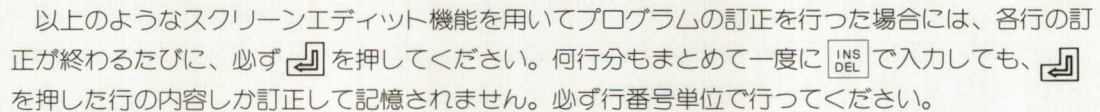 以上のようなスクリーンエディット機能を用いてプログラムの訂正を行った場合には、各行の訂
正が終わるたびに、必ず⏎を押してください。何行分もまとめて一度にINS DELで入力しても、⏎
を押した行の内容しか訂正して記憶されません。必ず行番号単位で行ってください。